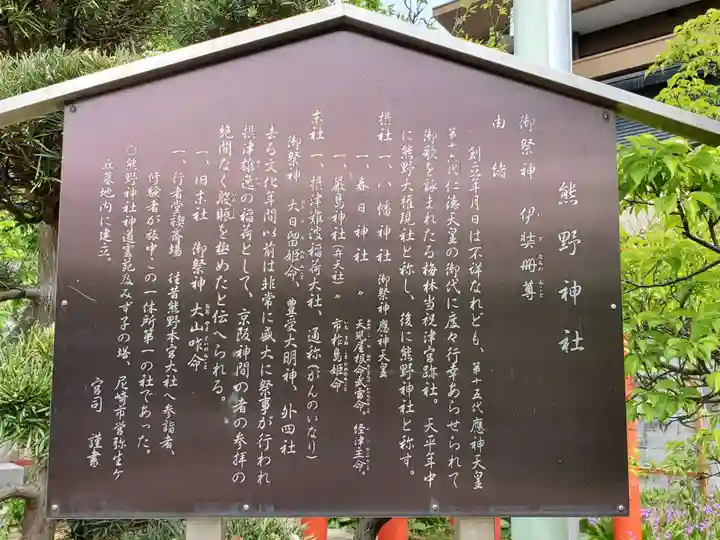 熊野神社
御祭神 伊弉冊尊
い ざ なみの みこと
由緒
創立年月日は不詳なれども、第十五代應神天皇
第十六代仁徳天皇の御代に度々行幸あらせられて
御歌を詠まれたる梅林当視津宮弥社。天平年中
に熊野大権現社と称し、後に熊野神社と称す。
摂社 一、八幡神社 御祭神 應神天皇
一、春日神社 〃 天児屋根命 武甕命 経津主命
一、厳島神社(弁天社) 〃 市杵島姫命
末社 一、摂津難波稲荷大社、通称(がんのいなり)
御祭神 大日留姫命、豊受大明神、外四社
去る文化年間以前は非常に盛大に祭事が行われ
摂津雄逸の稲荷として、京阪神間の者の参拝の
絶間なく殷賑を極めたと伝へられる。
一、旧末社 御祭神 大山咋命
一、行者堂禊斎場 往昔熊野本宮大社へ参詣者、
修験者が旅中この一休所第一の社であった。
○熊野神社神道霊苑及みず子の塔、尼崎市営弥生ケ
丘墓地内に建立。
宮司 謹書